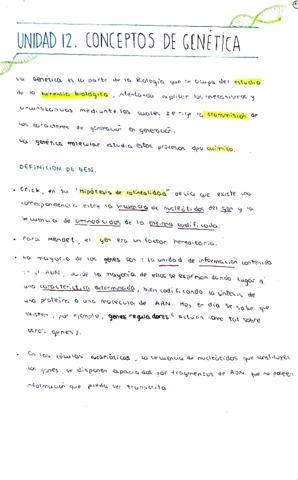 UNIDAD 12. CONCEPTOS DE GENÉTICA
La genética es la parte de la Biología que se ocupa del estudio
de la herencia biológica, intentando explicar los mecanismos y
circunstancias mediante los cuales se rige la transmisión de
los caracteres de generación en generación.
La genética molecular estudia estos procesos químico.
DEFINICIÓN DE GEN.
• Crick, en su "Hipótesis de colinealidad" decía que existe una
correspondencia entre la secuencia de nucleótidos del gen y la
secuencia de aminoácidos de la enzima codificada.
• Para Mendel, el gen era un factor hereditario.
• La mayoría de los genes son la unidad de información contenida
en el ADN, donde la mayoría de ellos se expresan dando lugar a
una característica determinada, bien codificando la síntesis de
una proteína o una molécula de ARN. Hoy en día se sabe que
existen, por ejemplo, genes reguladores (actúan sobre
otros genes).
• En las células eucarióticas, la secuencia de nucleótidos que constituyen
los genes, se disponen espaciados por fragmentos de ADN que no poseen
información que pueda ser transcrita.